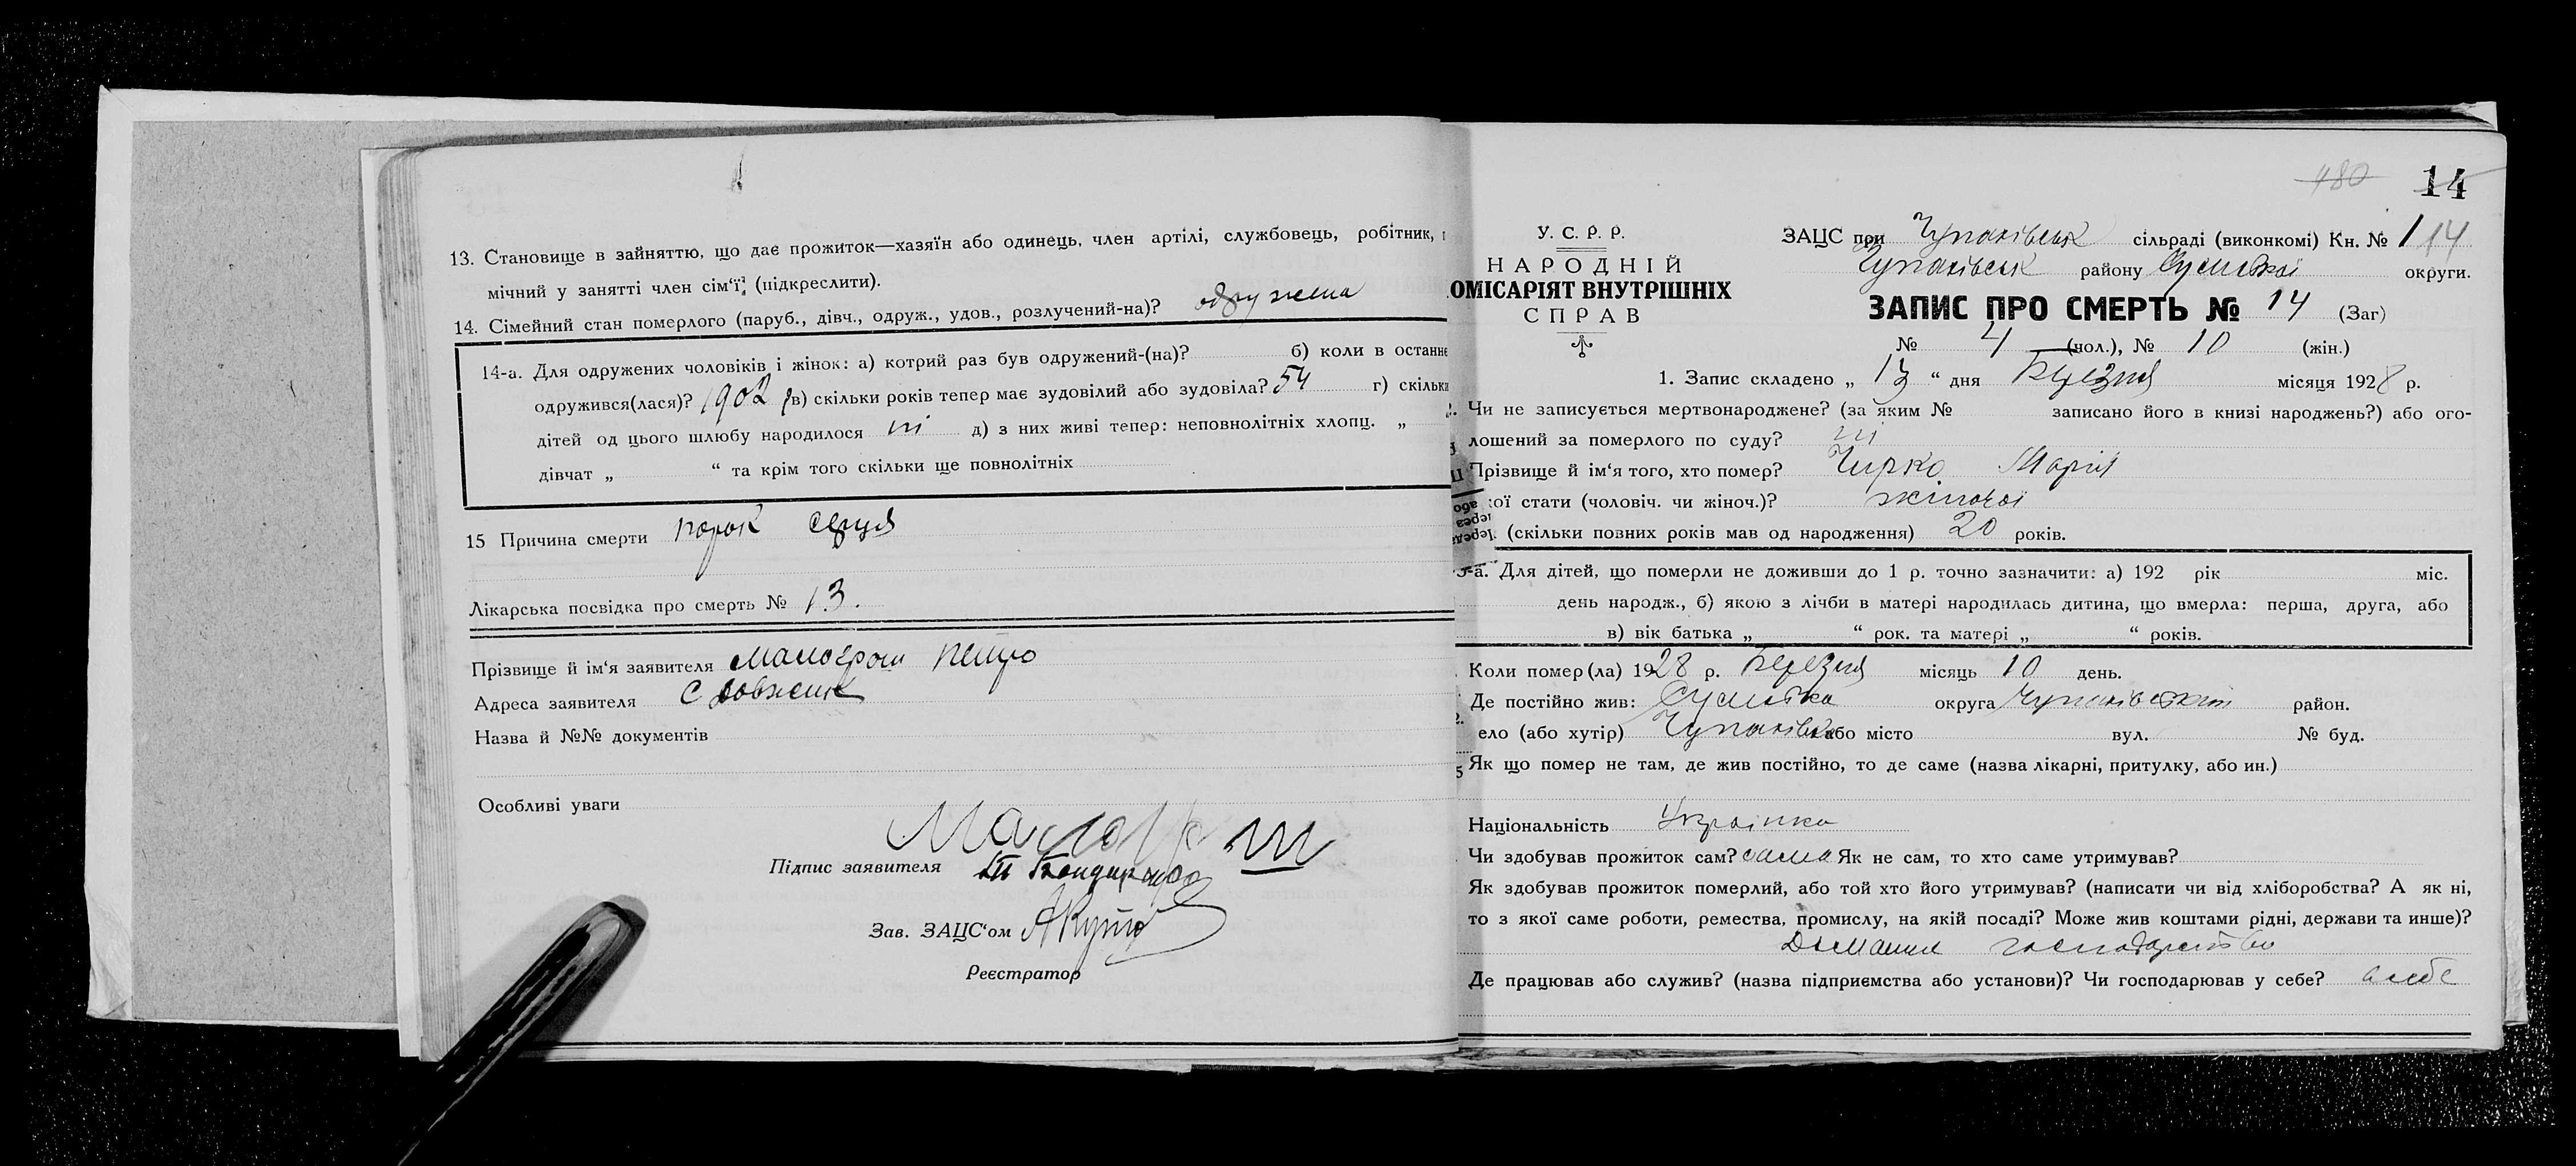 13. Становище в зайняттю, що дає прожиток—хазяїн або одинець, член артілі, службовець, робітник,
мічний у занятті член сім‘ї; (підкреслити).
14. Сімейний стан померлого (паруб., дівч., одруж., удов., розлучений-на)? одружена
14-а. Для одружених чоловіків і жінок: а) котрий раз був одружений-(на)? б) коли в останнє
одружився(лася)? 1902 р в) скільки років тепер має зудовілий або зудовіла? 54 г) скільки
дітей од цього шлюбу народилося ні д) з них живі тепер: неповнолітніх хлопц. „
дівчат „ “ та крім того скільки ще повнолітніх
15 Причина смерти порок серця
Лікарська посвідка про смерть № 13.
Прізвище й ім‘я заявителя Петро
Адреса заявителя с Довжик
Назва й №№ документів
Особливі уваги
Підпис заявителя
Зав. ЗАЦС‘ом
Реєстратор
480 14
У. С. Р. Р.
НАРОДНІЙ
ОМІСАРІЯТ ВНУТРІШНІХ
СПРАВ
ЗАЦС при Чупахівськ сільраді (виконкомі) Кн. № 1 14
Чупахівськ району Сумської округи.
ЗАПИС ПРО СМЕРТЬ № 14 (Заг)
№ 4 (чол.), № 10 (жін.)
1. Запис складено „ 13 “ дня Березня місяця 1928 р.
2. Чи не записується мертвонароджене? (за яким № записано його в книзі народжень?) або ого-
лошений за померлого по суду? ні
Прізвище й ім‘я того, хто помер? Чирко Марія
кої стати (чоловіч. чи жіноч.)? жіночої
(скільки повних років мав од народження) 20 років.
5-а. Для дітей, що померли не доживши до 1 р. точно зазначити: а) 192 рік міс.
день народж., б) якою з лічби в матері народилась дитина, що вмерла: перша, друга, або
в) вік батька „ “ рок. та матері „ “ років.
Коли помер(ла) 1928 р. Березня місяць 10 день.
Де постійно жив: Сумська округа Чупахівський район.
ело (або хутір) Чупахівка або місто вул. № буд.
Як що помер не там, де жив постійно, то де саме (назва лікарні, притулку, або ин.)
Національність Українка
Чи здобував прожиток сам? сама Як не сам, то хто саме утримував?
Як здобував прожиток померлий, або той хто його утримував? (написати чи від хліборобства? А як ні,
то з якої саме роботи, ремества, промислу, на якій посаді? Може жив коштами рідні, держави та инше)?
Домашнє господарство
Де працював або служив? (назва підприємства або установи)? Чи господарював у себе? в себе